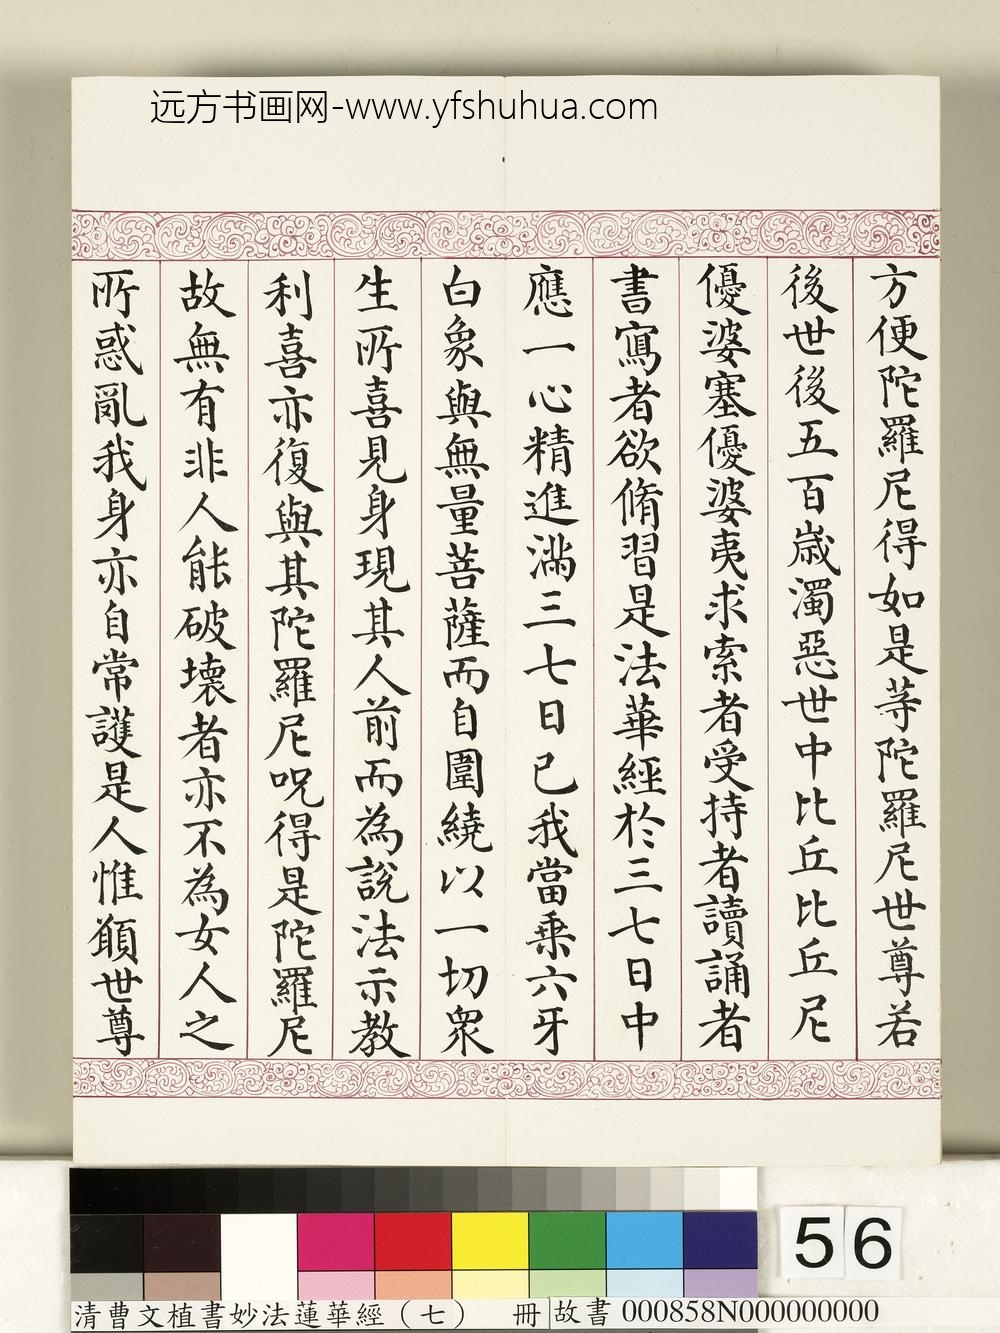 远方书画网-www.yfshuhua.com
方便陀羅尼得如是等陀羅尼世尊若
後世後五百歲濁惡世中比丘比丘尼
優婆塞優婆夷求索者受持者讀誦者
書寫者欲脩習是法華經於三七日中
應一心精進滿三七日已我當乘六牙
白象與無量菩薩而自圍繞以一切眾
生所喜見身現其人前而為說法示教
利喜亦復與其陀羅尼呪得是陀羅尼
故無有非人能破壞者亦不為女人之
所惑亂我身亦自常護是人惟願世尊
56
清曹文植書妙法蓮華經（七） 冊 故書 000858N000000000